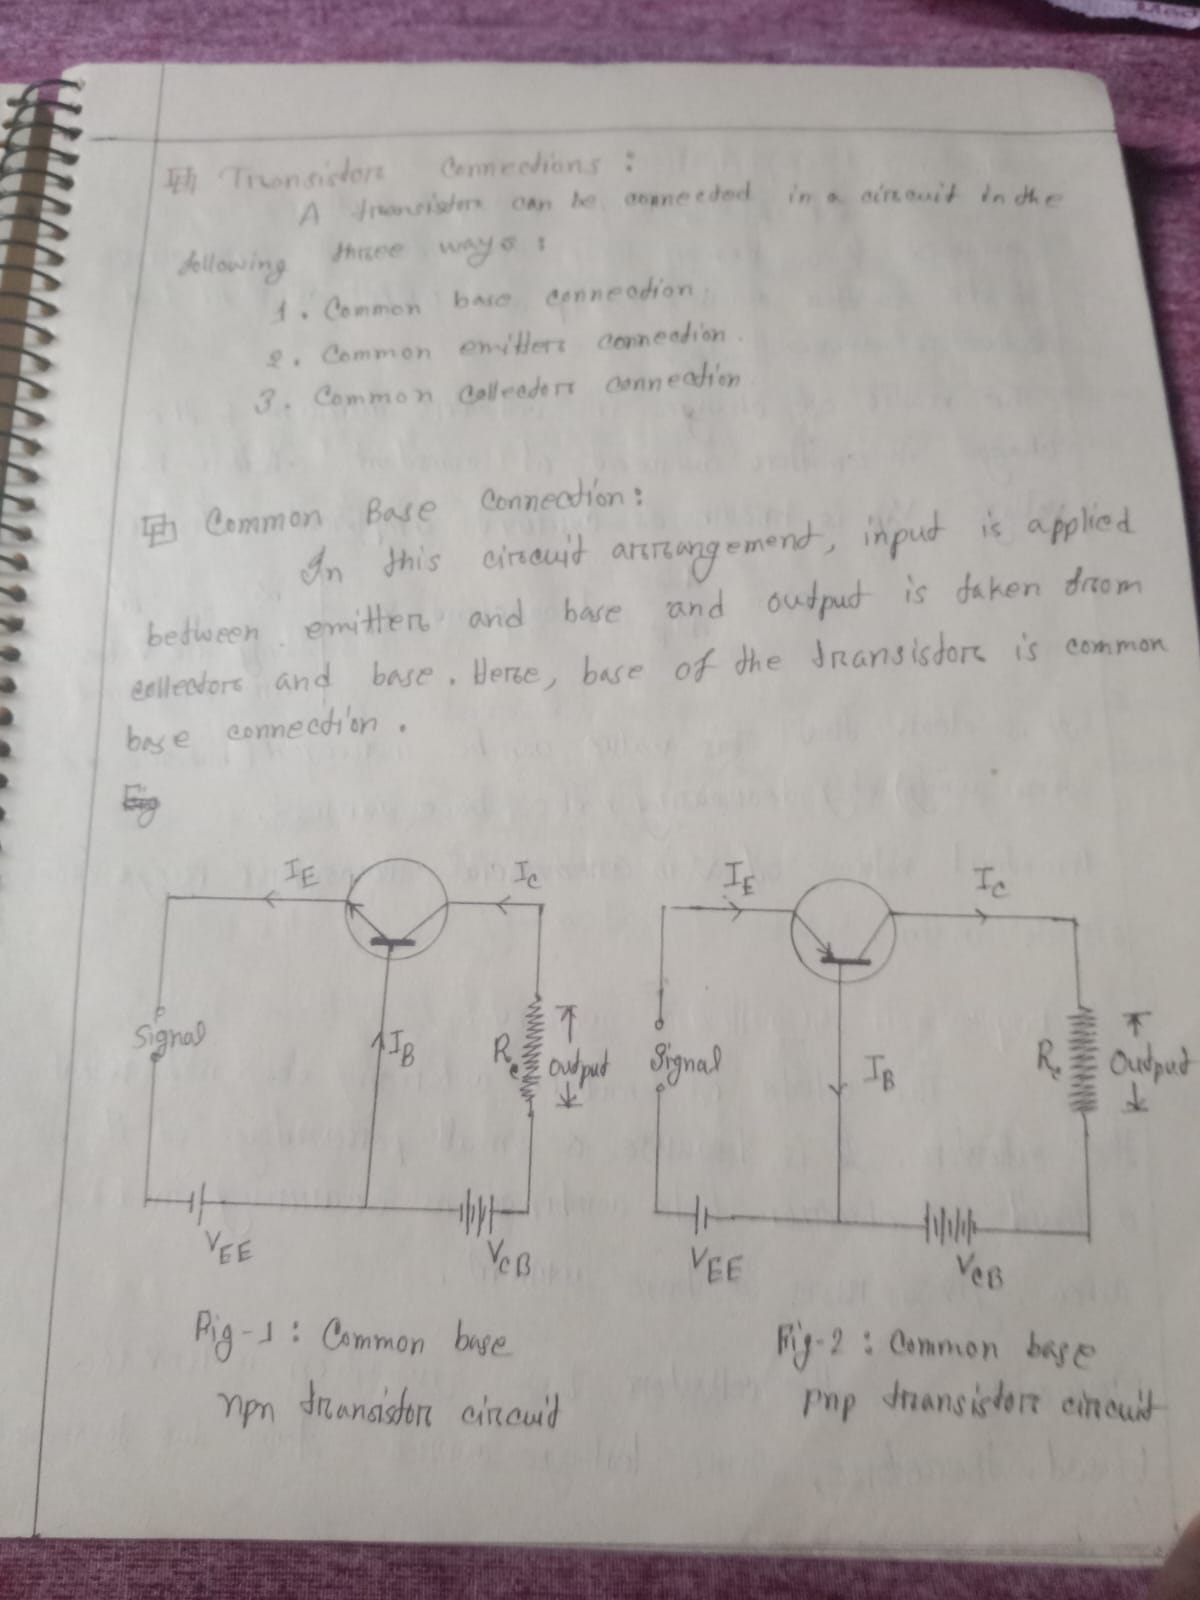 Transistor Connections :
A transistor can be connected in a circuit in the
following three ways :
1. Common base connection.
2. Common emitter connection.
3. Common Collector connection
Common Base Connection :
In this circuit arrangement, input is applied
between emitter and base and output is taken from
collector and base. Here, base of the transistor is common
base connection.
Fig
IE IC
Signal
IB
Rc
Output
VEE
VCB
Fig-1 : Common base
npn transistor circuit
IE IC
Signal
IB
Rc
Output
VEE
VCB
Fig-2 : Common base
pnp transistor circuit